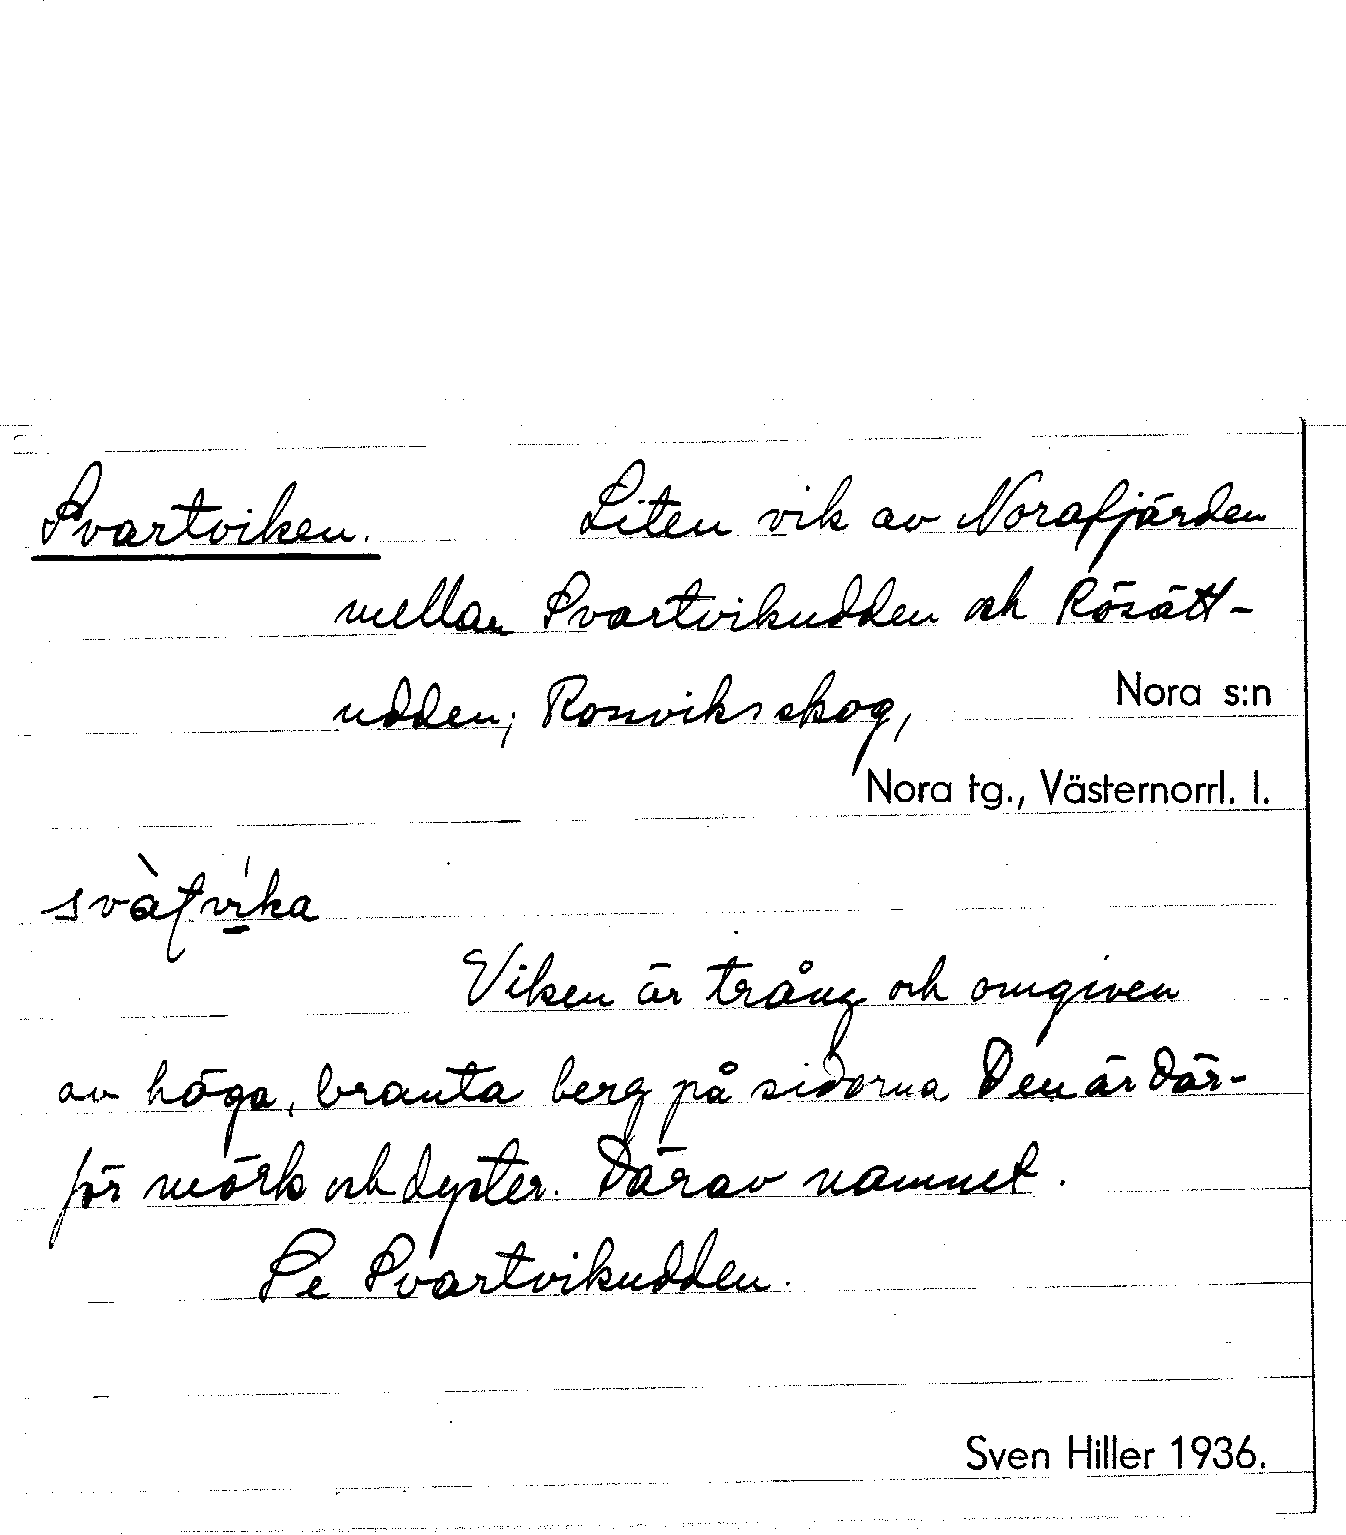 Svartviken. Liten vik av Norafjärden
mellan Svartvikudden och Rösätt-
udden; Rossviksskog, Nora s:n
Nora tg., Västernorrl. l.
svàṭvíka
Viken är trång och omgiven
av höga, branta berg på sidorna Den är där-
för mörk och dyster. Därav namnet.
Se Svartvikudden.
Sven Hiller 1936.